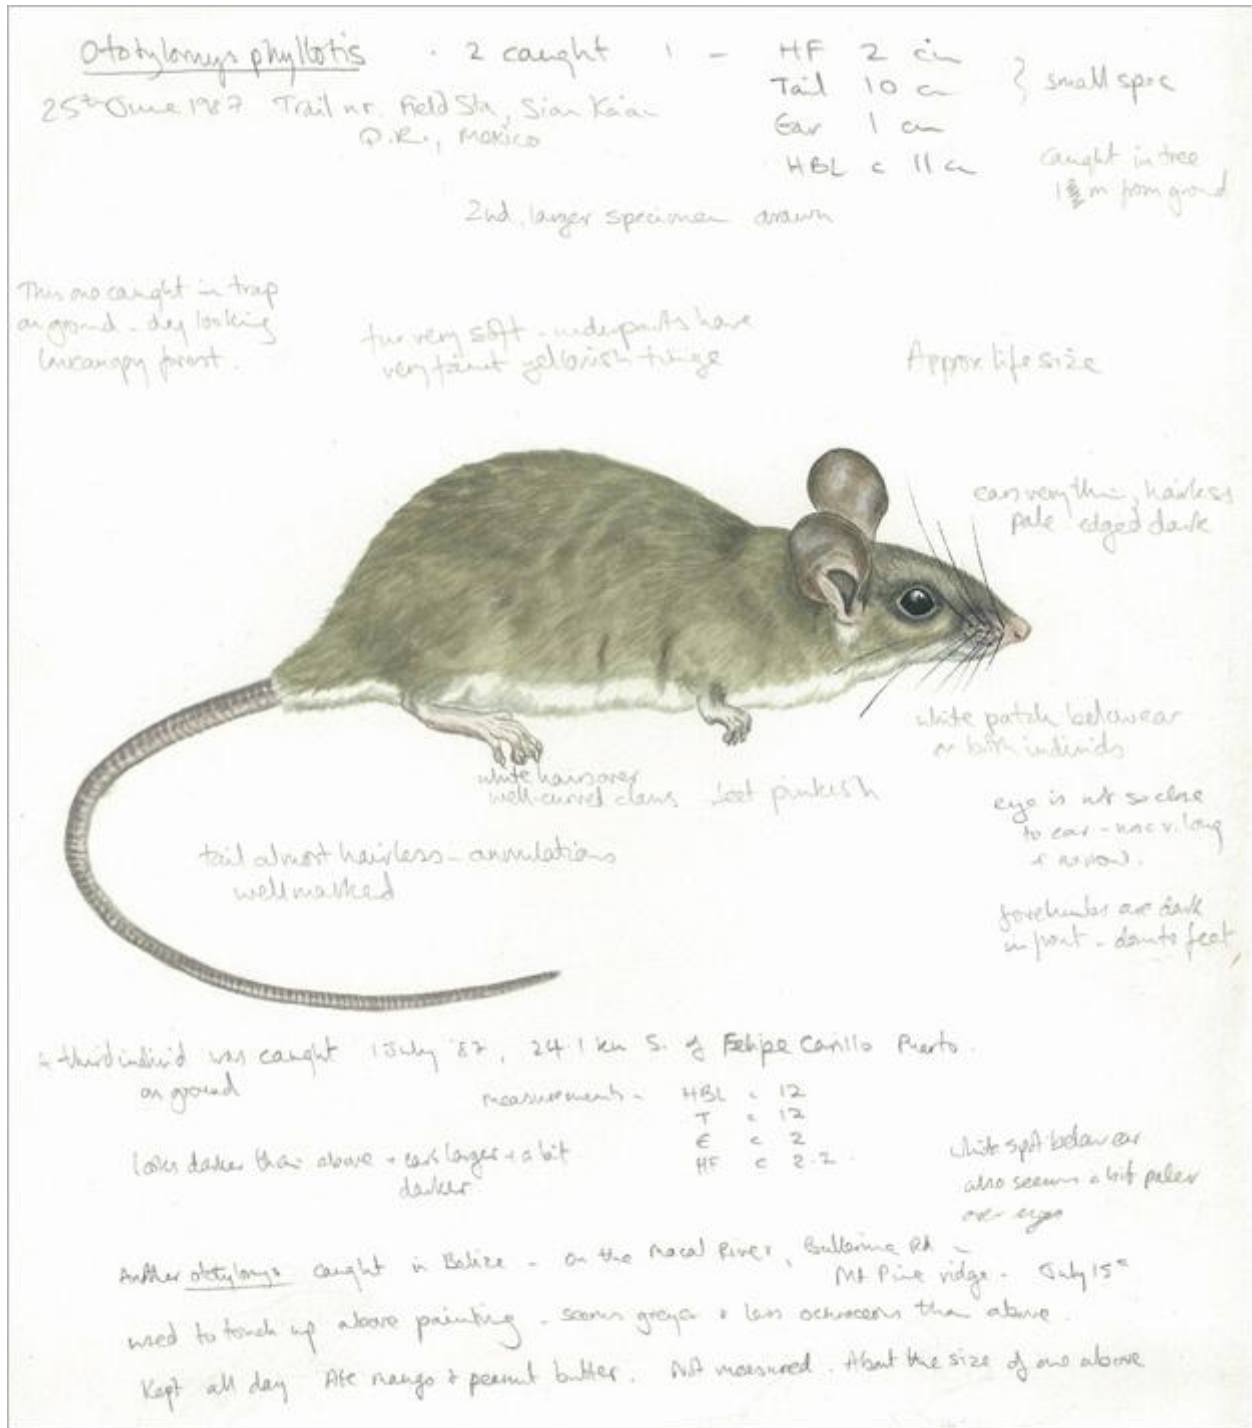 Ototylomys phyllotis · 2 caught 1 – HF 2 cm
Tail 10 cm } small spec
25th June 1987 Trail nr. Field Stn, Sian Ka'an
Q.R., Mexico
Ear 1 cm
HBL c 11 cm
caught in tree
m from ground
2nd, larger specimen drawn
This one caught in trap
on ground – dry looking
low canopy forest.
fur very soft – underparts have
very faint yellowish tinge
Approx life size
ears very thin, hairless
pale edged dark
white patch below ear
on both individs
white hairs over
well-curved claws feet pinkish
eye is not so close
to ear – nose v. long
+ narrow.
tail almost hairless – annulations
well marked
forelimbs are dark
in front – down to feet
A third individ was caught 1 July '87, 24.1 km S. of Felipe Carillo Puerto.
on ground
measurements – HBL c 12
T c 12
E c 2
HF c 2.2.
looks darker than above + ears larger + a bit
darker
white spot below ear
also seems a bit paler
over eyes
Another ototylomys caught in Belize – on the Macal River, Rd –
Mt Pine ridge – July 15th
used to touch up above painting – seems greyer + less ochraceous than above.
Kept all day Ate mango + peanut butter. Not measured. About the size of one above